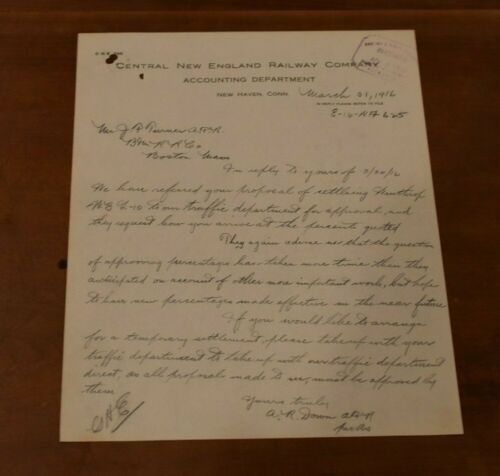 CENTRAL NEW ENGLAND RAILWAY COMPANY
ACCOUNTING DEPARTMENT
NEW HAVEN, CONN. March 31, 1916
IN REPLY PLEASE REFER TO FILE
Mr J F Turner
R R Co
Boston Mass
In reply to yours of
We have referred your proposal of settling Winthrop
W.B. to our traffic department for approval, and
they request how you arrive at the percents quoted
They again advise us that the question
of approving percentages has taken more time than they
anticipated on account of other more important work, but hope
to have new percentages made effective in the near future
If you would like to arrange
for a temporary settlement, please take up with your
traffic department to take up with our traffic department
direct, as all proposals made to us, must be approved by
them
Yours truly
A. R. Down